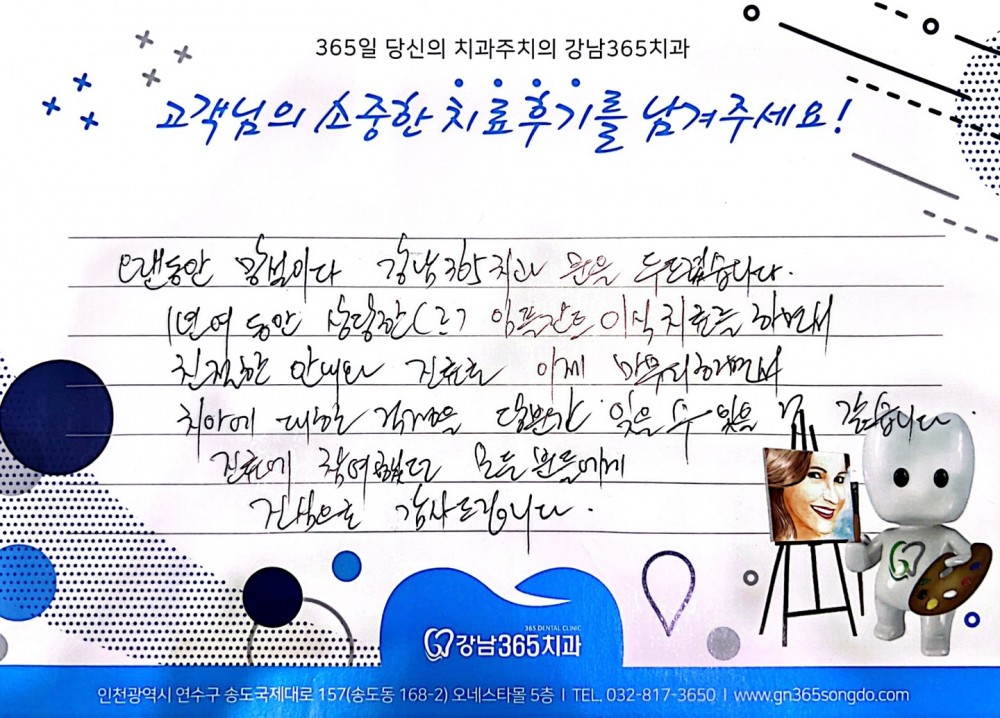 365일 당신의 치과주치의 강남365치과
고객님의 소중한 치료후기를 남겨주세요!
오랜동안 망설이다 강남365치과 문을 두드렸습니다.
1년여 동안 상당한 임플란트 이식 치료를 하면서
친절한 안내와 진료로 이제 마무리하면서
치아에 대한 걱정을 당분간 잊을 수 있을 것 같습니다.
진료에 참여했던 모든 분들에게
진심으로 감사드립니다.
365 DENTAL CLINIC
강남365치과
인천광역시 연수구 송도국제대로 157(송도동 168-2) 오네스타몰 5층 I TEL. 032-817-3650 I www.gn365songdo.com